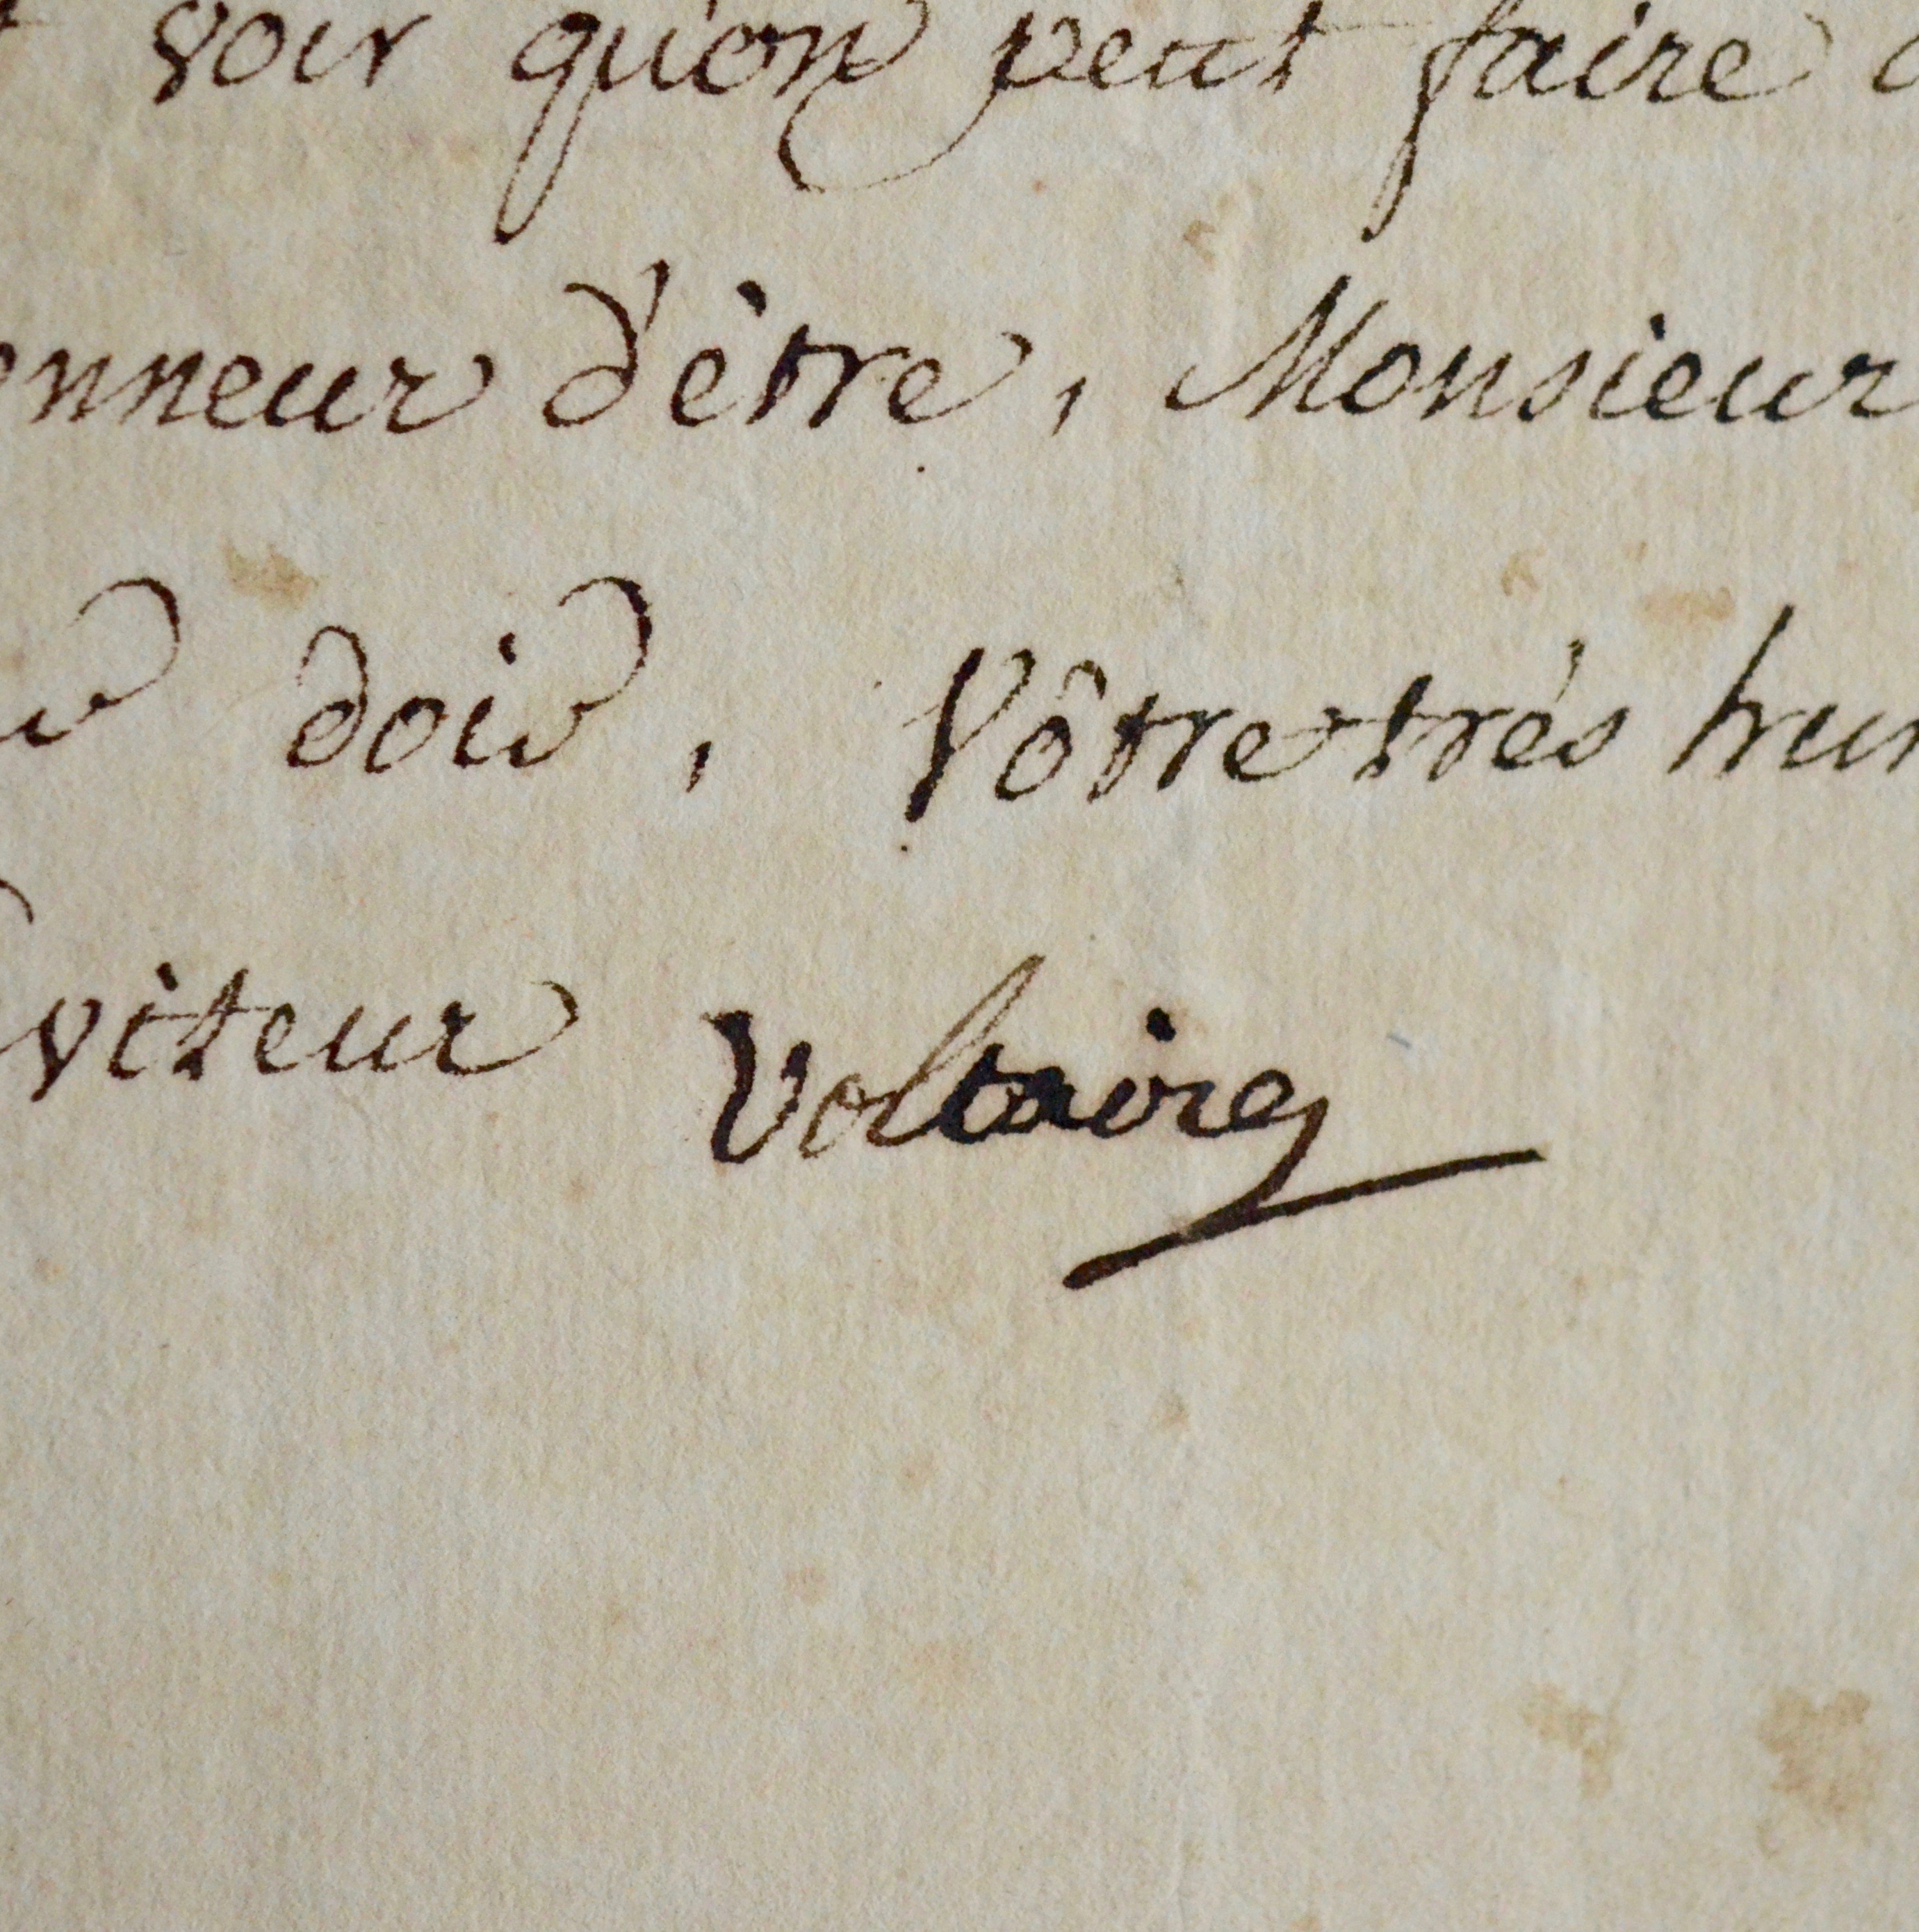 voir qu'on peut faire
onneur d'être, Monsieur
dois, Vôtre trés hum
viteur Voltaire